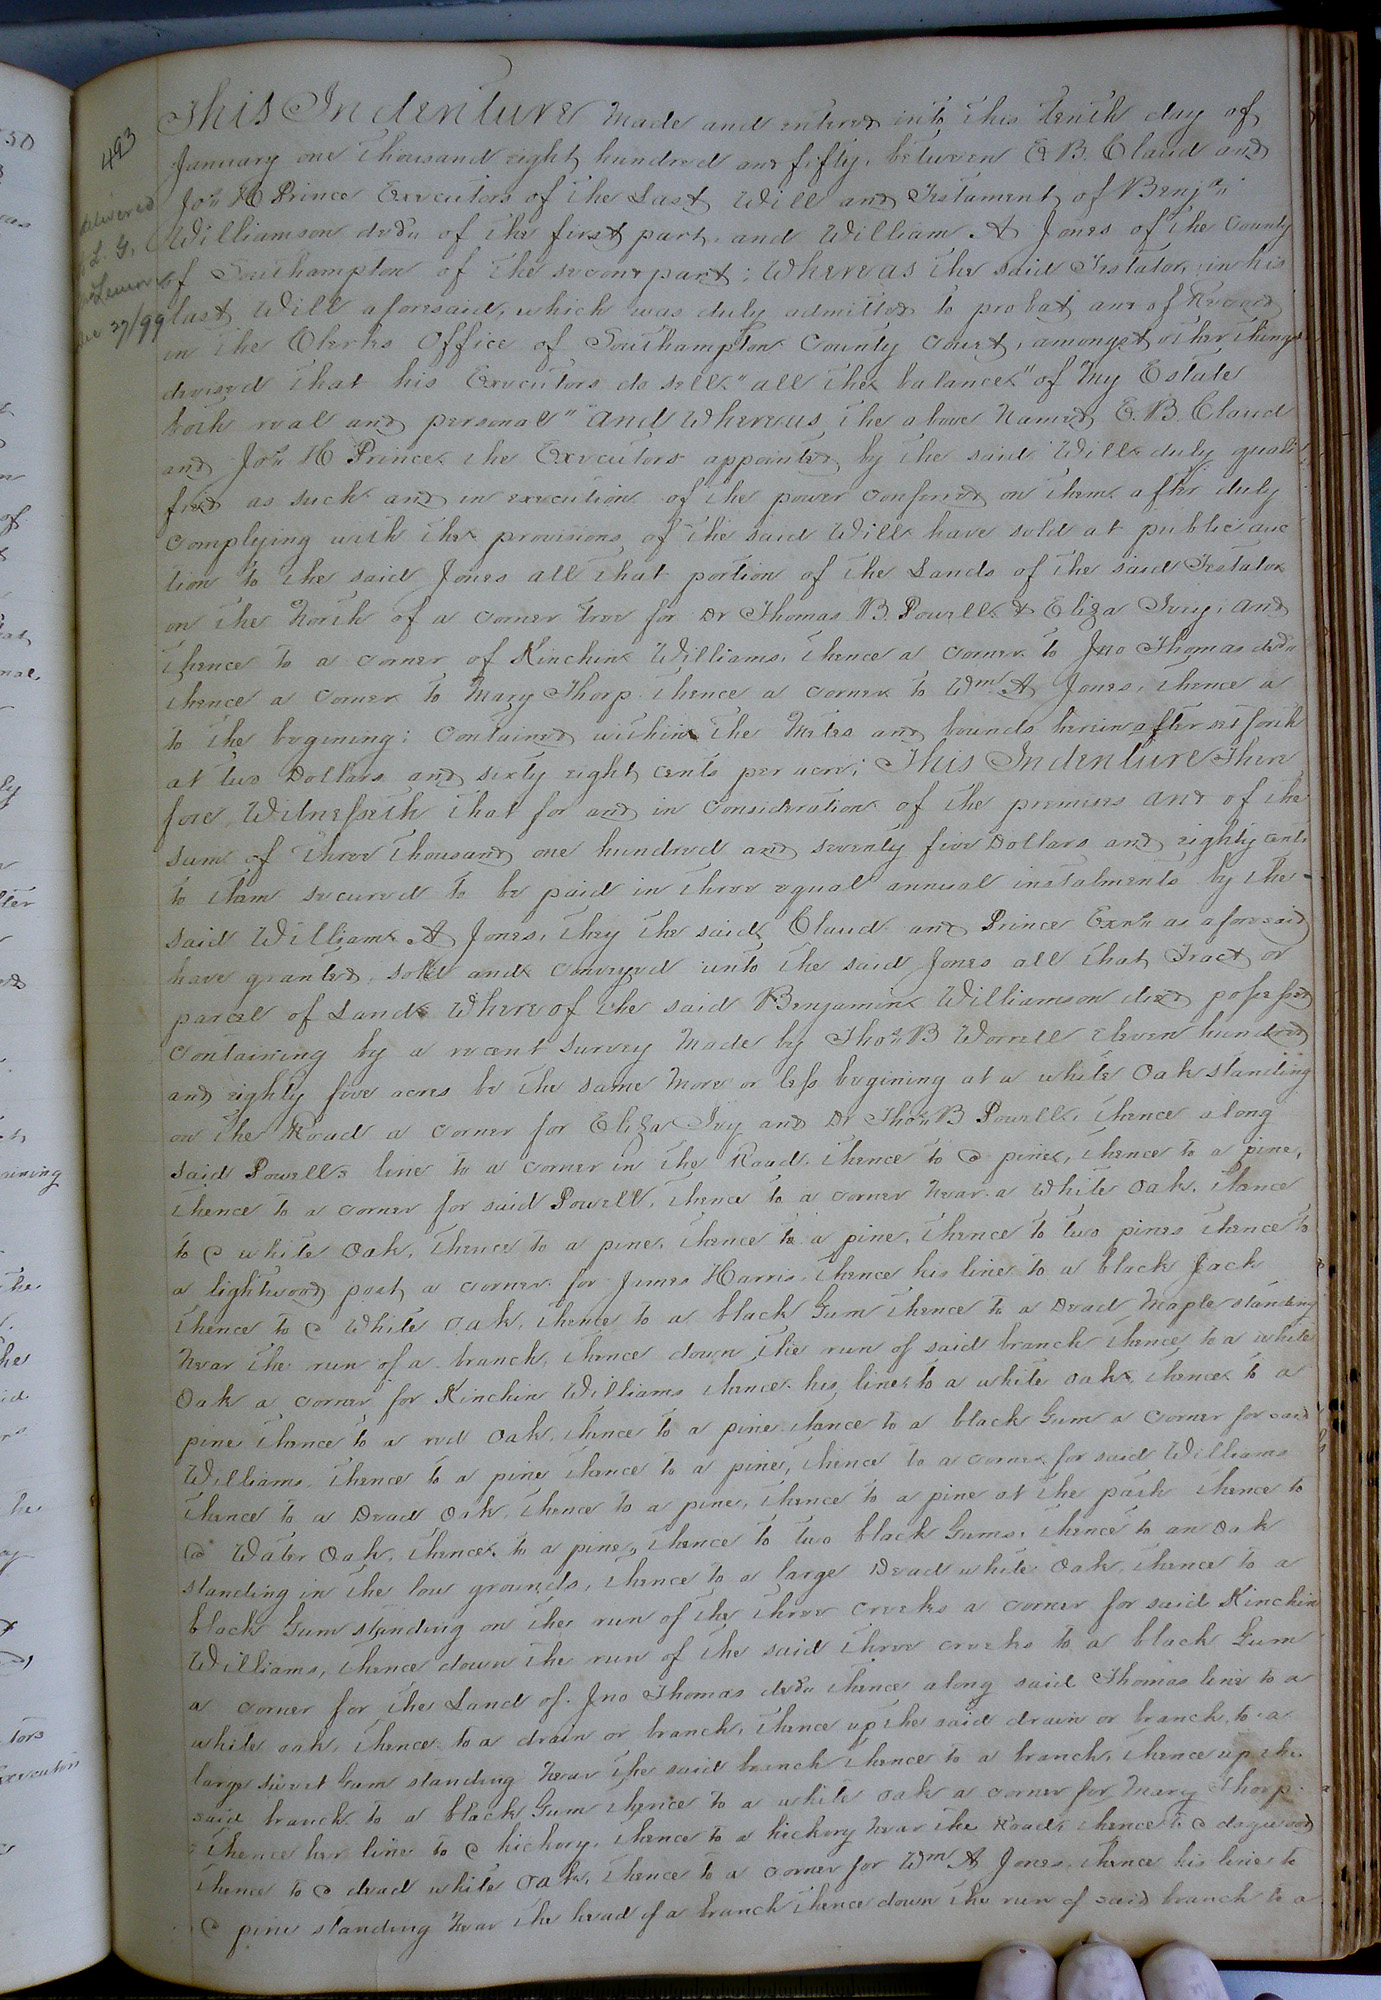 493
delivered
L. G.
Dec 27/99
This Indenture Made and entered into this tenth day of
January one thousand eight hundred and fifty, between E. B. Claud and
Jos H Prince Executors of the Last Will and Testament of Benjn
Williamson decd of the first part, and William A Jones of the County
of Southampton of the second part; Whereas the said Testator, in his
last Will aforesaid, which was duly admitted to probat and of Record
in the Clerks Office of Southampton County Court, amongst other things
devised that his Executors do sell "all the balance" of "My Estate
both real and personal" And Whereas the above Named E. B. Claud
and Jos H Prince the Executors appointed by the said Will duly quali
fied as such and in execution of the power conferred on them after duly
complying with the provisions of the said Will have sold at public auc
tion to the said Jones all that portion of the Lands of the said Testator
on the North of a corner tree for Dr Thomas B. Powell & Eliza Ivey, and
thence to a corner of Kinchin Williams, thence a corner to Jno Thomas decd
thence a corner to Mary Thorp thence a corner to Wm A Jones, thence a
to the begining; Contained within the Metes and bounds herein after set forth
at two Dollars and sixty eight cents per acre; This Indenture There
fore Witnesseth that for and in consideration of the premises and of the
sum of three thousand one hundred and seventy five Dollars and eighty cents
to them secured to be paid in three equal annual instalments by the
said William A Jones, they the said Claud and Prince Exrs as aforesaid
have granted, sold and conveyed unto the said Jones all that Tract or
parcel of Land Where of the said Benjamin Williamson died possessed
Containing by a recent survey Made by Thos B Worrell eleven hundred
and eighty five acres be the same More or less begining at a white Oak standing
on the Road a corner for Eliza Ivy and Dr Thos B Powell, thence along
said Powells line to a corner in the Road, thence to a pine, thence to a pine,
thence to a corner for said Powell, thence to a corner Near a White Oak, thence
to a white Oak, thence to a pine, thence to a pine, thence to two pines thence to
a lightwood post a corner for James Harris, thence his line to a black Jack
thence to a White oak, thence to a black Gum thence to a Dead Maple standing
Near the run of a branch, thence down the run of said branch thence to a white
Oak a corner for Kinchin Williams thence his line to a white oak, thence to a
pine thence to a red Oak, thence to a pine thence to a black Gum a corner for said
Williams, thence to a pine thence to a pine, thence to a corner for said Williams
thence to a Dead Oak, thence to a pine, thence to a pine at the path thence to
a Water Oak, thence to a pine, thence to two black Gums, thence to an Oak
standing in the low grounds, thence to a large Dead white Oak, thence to a
black Gum standing on the run of the three creeks a corner for said Kinchin
Williams, thence down the run of the said three creeks to a black Gum
a corner for the Land of Jno Thomas decd thence along said Thomas line to a
white oak, thence to a drain or branch, thence up the said drain or branch to a
large sweet Gum standing Near the said branch thence to a branch, thence up the
said branch to a black Gum thence to a white oak a corner for Mary Thorp
thence her line to a hickory, thence to a hickory Near the Road, thence to a dogwood
thence to a dead white Oak, thence to a corner for Wm A Jones, thence his line to
a pine standing Near the head of a branch thence down the run of said branch to a